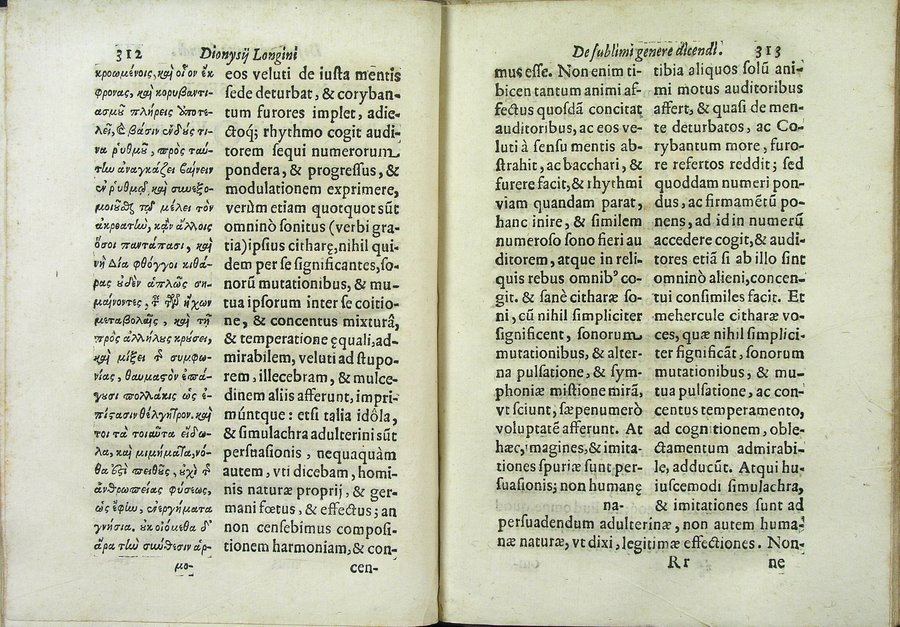 312 Dionysij Longini
κροωμένοις, καὶ οἷον ἔκ
φρονας, καὶ κορυβαντι-
ασμοῦ πλήρεις ἀποτε-
λεῖ, καὶ βάσιν ἐνδούς τι-
να ῥυθμοῦ, πρὸς ταύ-
την ἀναγκάζει βαίνειν
ἐν ῥυθμῷ, καὶ συνεξο-
μοιοῦσθαι τῷ μέλει τὸν
ἀκροατὴν, κἂν ἄλλοις
ὅσοι παντάπασι, καὶ
νὴ Δία φθόγγοι κιθά-
ρας οὐδὲν ἁπλῶς ση-
μαίνοντες, τ τῶν ἤχων
μεταβολαῖς, καὶ τῇ
πρὸς ἀλλήλους κρούσει,
καὶ μίξει τ συμφω-
νίας, θαυμαστὸν ἐπά-
γουσι πολλάκις ὡς ἐ-
πίστασιν θέλγητρον. καί
τοι τὰ τοιαῦτα εἴδω-
λα, καὶ μιμήματα, νό-
θα ἐστὶ πειθοῦς, οὐχὶ τ
ἀνθρωπείας φύσεως,
ὡς ἔφην, ἐνεργήματα
γνήσια. οὐκ οἰόμεθα δ'
ἄρα τὴν σύνθεσιν ἁρ-
μο-
eos veluti de iusta mentis
sede deturbat, & coryban-
tum furores implet, adie-
ctoq; rhythmo cogit audi-
torem sequi numerorum
pondera, & progressus, &
modulationem exprimere,
verùm etiam quotquot sũt
omninò sonitus (verbi gra-
tia) ipsius citharę, nihil qui-
dem per se significantes, so-
norũ mutationibus, & mu-
tua ipsorum inter se coitio-
ne, & concentus mixturâ,
& temperatione ęquali, ad-
mirabilem, veluti ad stupo-
rem, illecebram, & mulce-
dinem aliis afferunt, impri-
múntque: etsi talia idôla,
& simulachra adulterini sũt
persuasionis, nequaquàm
autem, vti dicebam, homi-
nis naturæ proprij, & ger-
mani fœtus, & effectus; an
non censebimus composi-
tionem harmoniam, & con-
cen-
De sublimi genere dicendi. 313
mus esse. Non enim ti-
bicen tantum animi af-
fectus quosdã concitat
auditoribus, ac eos ve-
luti à sensu mentis ab-
strahit, ac bacchari, &
furere facit, & rhythmi
viam quandam parat,
hanc inire, & similem
numeroso sono fieri au
ditorem, atque in reli-
quis rebus omnibꝰ co-
git. & sanè citharæ so-
ni, cũ nihil simpliciter
significent, sonorum
mutationibus, & alter-
na pulsatione, & sym-
phoniæ mistione mirã,
vt sciunt, sæpenumerò
voluptatẽ afferunt. At
hæc, imagines, & imita-
tiones spuriæ sunt per-
suasionis; non humanę
na-
tibia aliquos solũ ani-
mi motus auditoribus
affert, & quasi de men-
te deturbatos, ac Co-
rybantum more, furo-
re refertos reddit; sed
quoddam numeri pon-
dus, ac firmamẽtũ po-
nens, ad id in numerũ
accedere cogit, & audi-
tores etiã si ab illo sint
omninò alieni, concen-
tui consimiles facit. Et
mehercule citharæ vo-
ces, quæ nihil simplici-
ter significãt, sonorum
mutationibus, & mu-
tua pulsatione, ac con-
centus temperamento,
ad cognitionem, oble-
ctamentum admirabi-
le, adducũt. Atqui hu-
iuscemodi simulachra,
& imitationes sunt ad
persuadendum adulterinæ, non autem huma-
næ naturæ, vt dixi, legitimæ effectiones. Non-
Rr ne